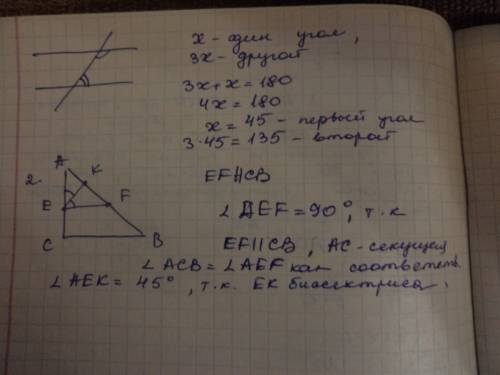 x - один угол,
3x - другой
3x + x = 180
4x = 180
x = 45 - первый угол
3·45 = 135 - второй
2.
A
K
E
F
C
B
EF||CB
∠AEF = 90°, т.к
EF||CB, AC - секущая
∠ACB = ∠AEF как соответств.
∠AEK = 45°, т.к. EK биссектриса.